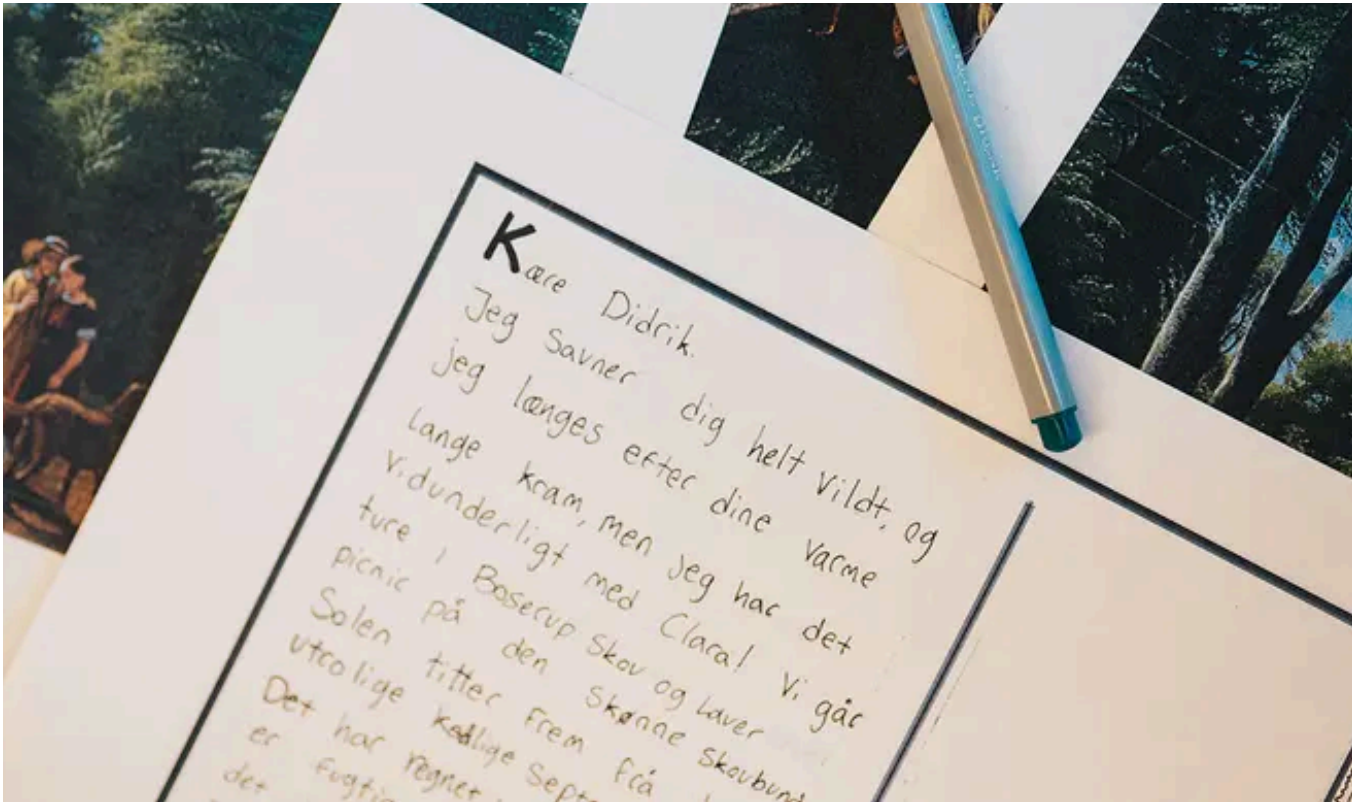 Kære Didrik.
Jeg savner dig helt vildt, og
jeg længes efter dine varme
lange kram, men jeg har det
vidunderligt med Clara! Vi går
ture i Boserup Skov og laver
picnic på den skønne skovbund
Solen titter frem fra
utrolige kedlige Septe
Det har regnet
er fugtig
det